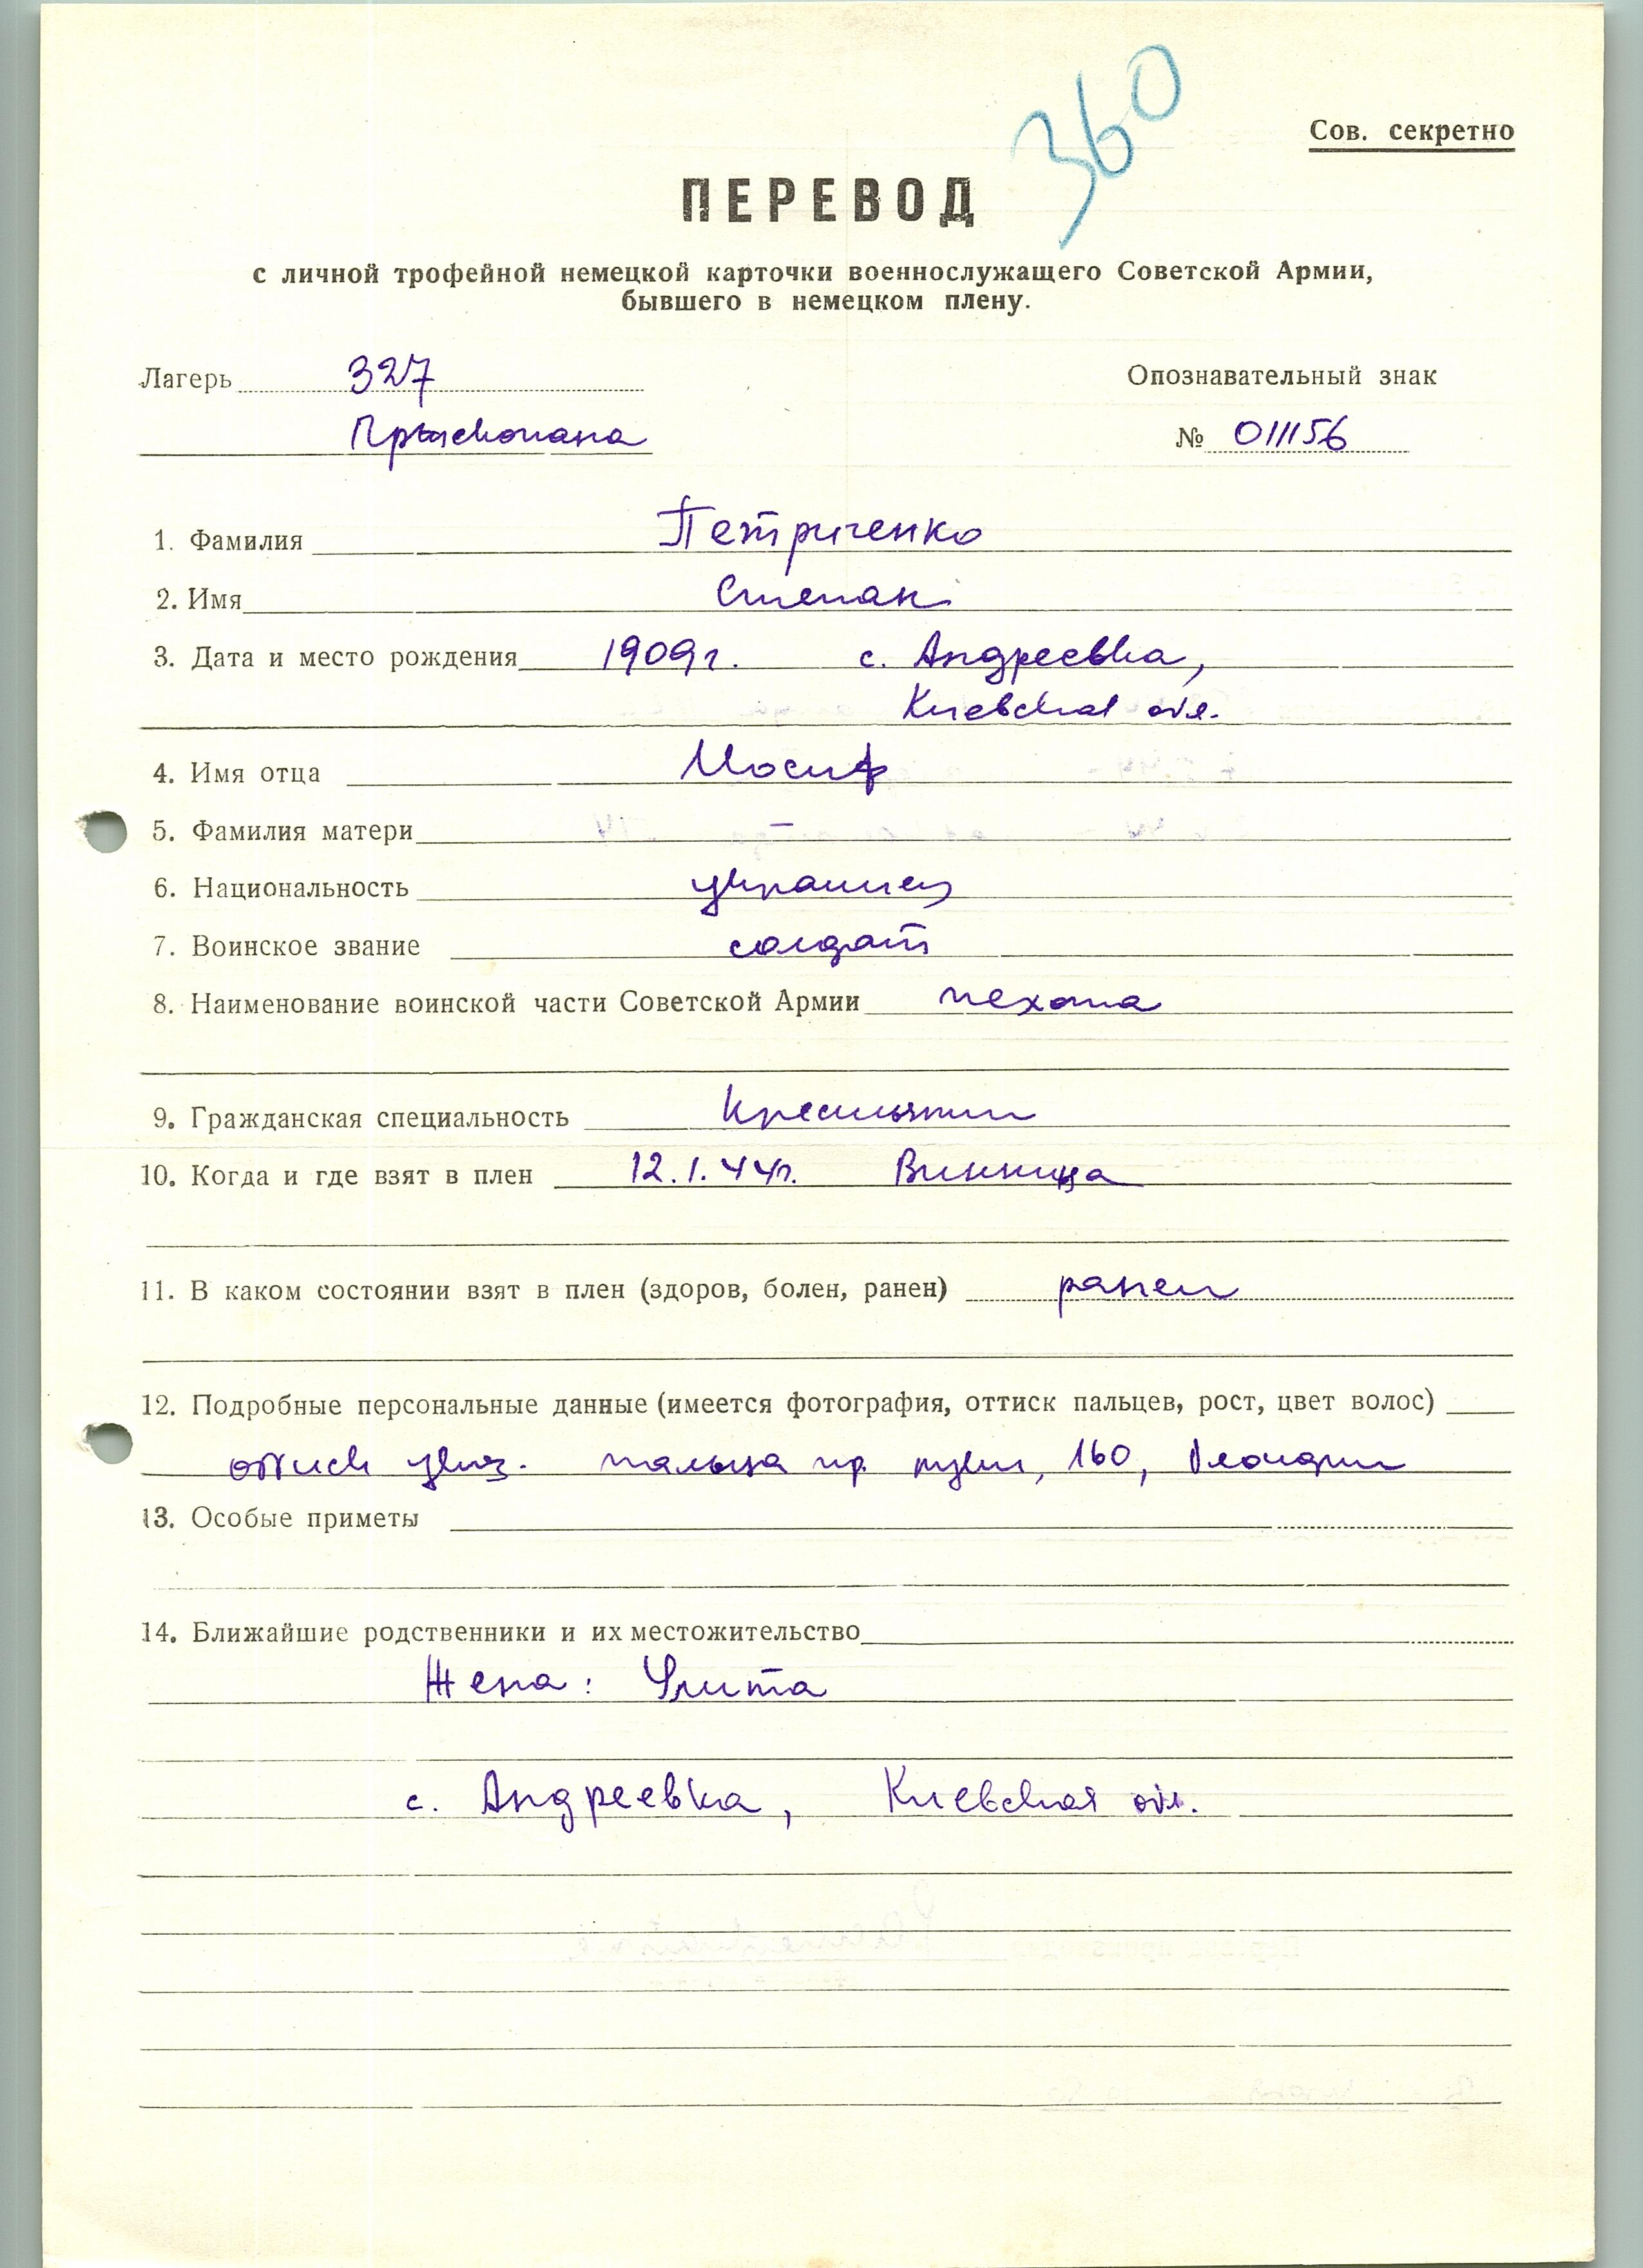 360
Сов. секретно
ПЕРЕВОД
с личной трофейной немецкой карточки военнослужащего Советской Армии,
бывшего в немецком плену.
Лагерь 327
Опознавательный знак
№ 011156
1. Фамилия Петриченко
2. Имя Степан
3. Дата и место рождения 1909 г. с. Андреевка,
Киевская обл.
4. Имя отца Иосиф
5. Фамилия матери —
6. Национальность украинец
7. Воинское звание солдат
8. Наименование воинской части Советской Армии пехота
9. Гражданская специальность крестьянин
10. Когда и где взят в плен 12.1.44г. Винница
11. В каком состоянии взят в плен (здоров, болен, ранен) ранен
12. Подробные персональные данные (имеется фотография, оттиск пальцев, рост, цвет волос)
оттиск указ. пальца пр. руки, 160, блондин
13. Особые приметы
14. Ближайшие родственники и их местожительство
Жена: Улита
с. Андреевка, Киевская обл.